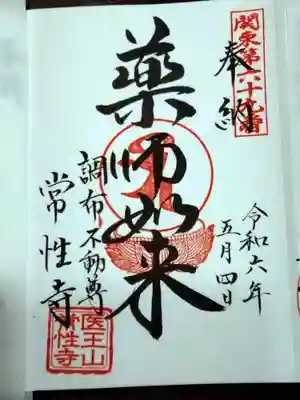 関東第六十九番
奉納
令和六年
五月四日
藥師如来
調布不動尊
常性寺
医王山
常性寺